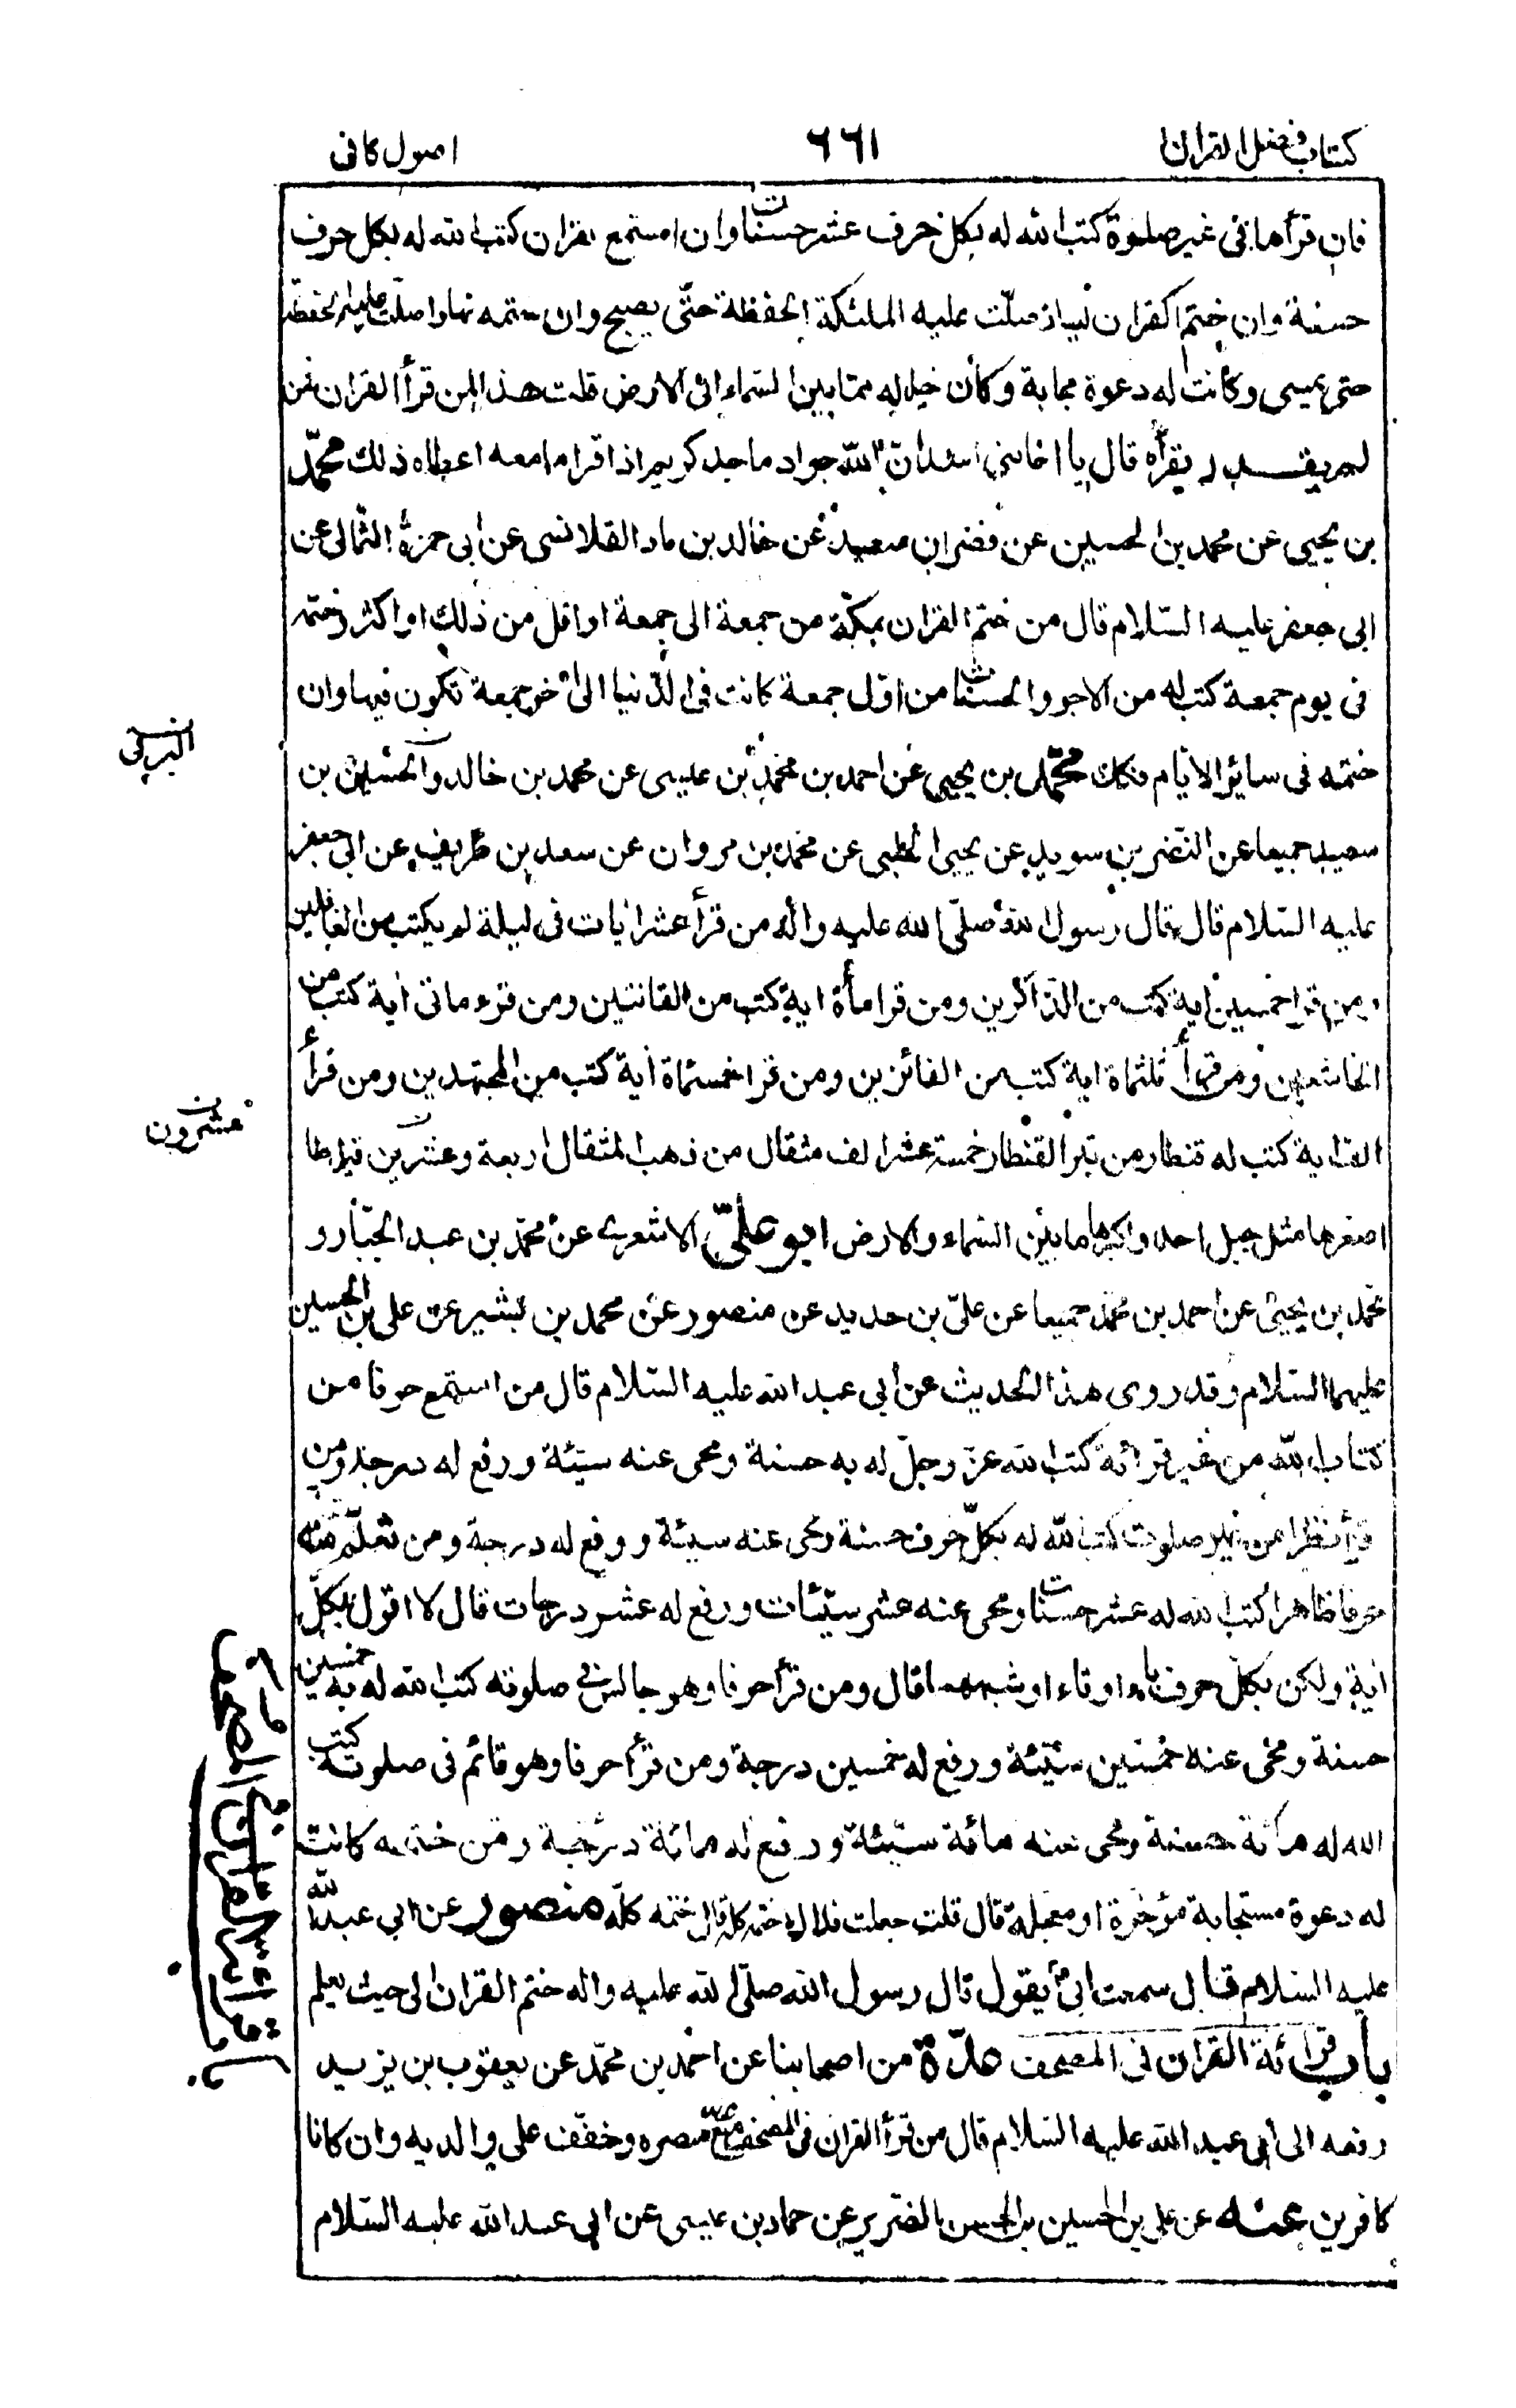 كتاب فضل القران
٦٦١
اصول كافى
فان قرأها فى غير صلوة كتب الله له بكل حرف عشر حسنات وان استمع القران كتب الله له بكل حرف
حسنة وان ختم القران ليلا صلّت عليه الملئكة الحفظة حتّى يصبح وان ختمه نهارا صلّت عليه الحفظة
حتى يمسى وكانت له دعوة مجابة وكان خيرا له ممّا بين السّماء الى الارض قلت هذا لمن قرأ القران فمن
لم يقدر يقرأه قال يا اخا بنى اسد ان الله جواد ماجد كريم اذا قرا ما معه اعطاه ذلك محمّد
بن يحيى عن محمد بن الحسين عن نضر بن سعيد عن خالد بن ماد القلانسى عن ابى حمزة الثّمالى عن
ابى جعفر عليه السّلام قال من ختم القران بمكّة من جمعة الى جمعة او اقل من ذلك او اكثر وختمه
فى يوم جمعة كتب له من الاجر والحسنات من اوّل جمعة كانت فى الدّنيا الى اخر جمعة تكون فيها وان
ختمه فى سائر الايّام فكذلك محمّد بن يحيى عن احمد بن محمّد بن عيسى عن محمد بن خالد والحسين بن
البرقى
سعيد جميعا عن النّضر بن سويد عن يحيى الحلبى عن محمّد بن مروان عن سعد بن طريف عن ابى جعفر
عليه السّلام قال قال رسول الله صلّى الله عليه واله من قرأ عشر ايات فى ليلة لم يكتب من الغافلين
ومن قرا خمسين اية كتب من الذّاكرين ومن قرا مأة اية كتب من القانتين ومن قرء ماتى اية كتب من
الخاشعين ومن قرأ ثلثماة اية كتب من الفائزين ومن قرا خمسماة اية كتب من المجتهدين ومن قرأ
الف اية كتب له قنطار من تبر القنطار خمسة عشر الف مثقال من ذهب المثقال اربعة وعشرين قيراطا
عشرون
اصغرها مثل جبل احد واكبرها ما بين السّماء والارض ابو علىّ الاشعرى عن محمّد بن عبد الجبّار و
محمّد بن يحيى عن احمد بن محمّد جميعا عن علىّ بن حديد عن منصور عن محمد بن بشير عن على بن الحسين
عليهما السّلام وقد روى هذا الحديث عن ابى عبد الله عليه السّلام قال من استمع حرفا من
كتاب الله من غير قرائة كتب الله عزّ وجلّ له به حسنة ومحى عنه سيّئة ورفع له درجة ومن
قرأ نظرا من غير صلوت كتب الله له بكلّ حرف حسنة ومحى عنه سيئة ورفع له درجة ومن تعلّم منه
حرفا ظاهرا كتب الله له عشر حسنات ومحى عنه عشر سيّئات ورفع له عشر درجات قال لا اقول بكلّ
اية ولكن بكلّ حرف باء او تاء او شبههما قال ومن قرأ حرفا وهو جالس فى صلوته كتب الله له به خمسين
حسنة ومحى عنه خمسين سيّئة ورفع له خمسين درجة ومن قرأ حرفا وهو قائم فى صلوته كتب
الله له مائة حسنة ومحى عنه مائة سيّئة ورفع له مائة درجة ومن ختمه كانت
له دعوة مستجابة مؤخّرة او معجلة قال قلت جعلت فداك ختمه كله قال ختمه كلّه منصور عن ابى عبد الله
عليه السّلام قال سمعت ابى يقول قال رسول الله صلّى الله عليه واله ختم القران الى حيث يعلم
باب قرائة القران فى المصحف عدّة من اصحابنا عن احمد بن محمّد عن يعقوب بن يزيد
باب قرائة القران فى المصحف
رفعه الى ابى عبد الله عليه السّلام قال من قرأ القران فى المصحف متّع ببصره وخفّف على والديه وان كانا
كافرين عنه عن على بن الحسين بن الحسن الضّرير عن حماد بن عيسى عن ابى عبد الله عليه السّلام